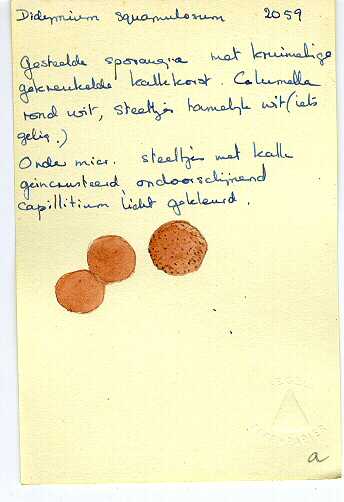 Didymium squamulosum 2059
Gesteelde sporangia met kruimelige
gekreukelde kalkkorst. Columella
rond wit, steeltjes tamelijk wit (iets
gelig.)
Onder micr. steeltjes met kalk
geïncrusteerd, ondoorschijnend
capillitium licht gekleurd.
a